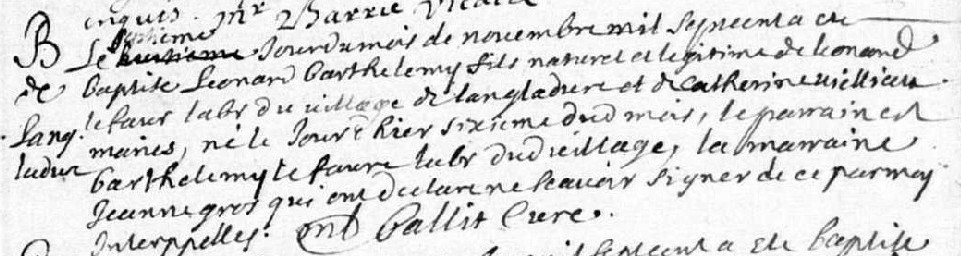 enquis. Mr Barrie Vicaire
B Le septieme huitieme Jour du mois de novembre mil sept cent a ete
de baptise Leonard barthelemy fils naturel et legitime de leonard
lefaure labr du village de langladure et de Catherine
Lang maries, né le Jour d'hier sixieme dud mois, le parrain est
ladure barthelemy le faure labr dud village, la marraine
Jeanne gros qui ont declare ne scavoir signer de ce par moy
Interppelles. ballit Cure.
sept cent a ete baptise